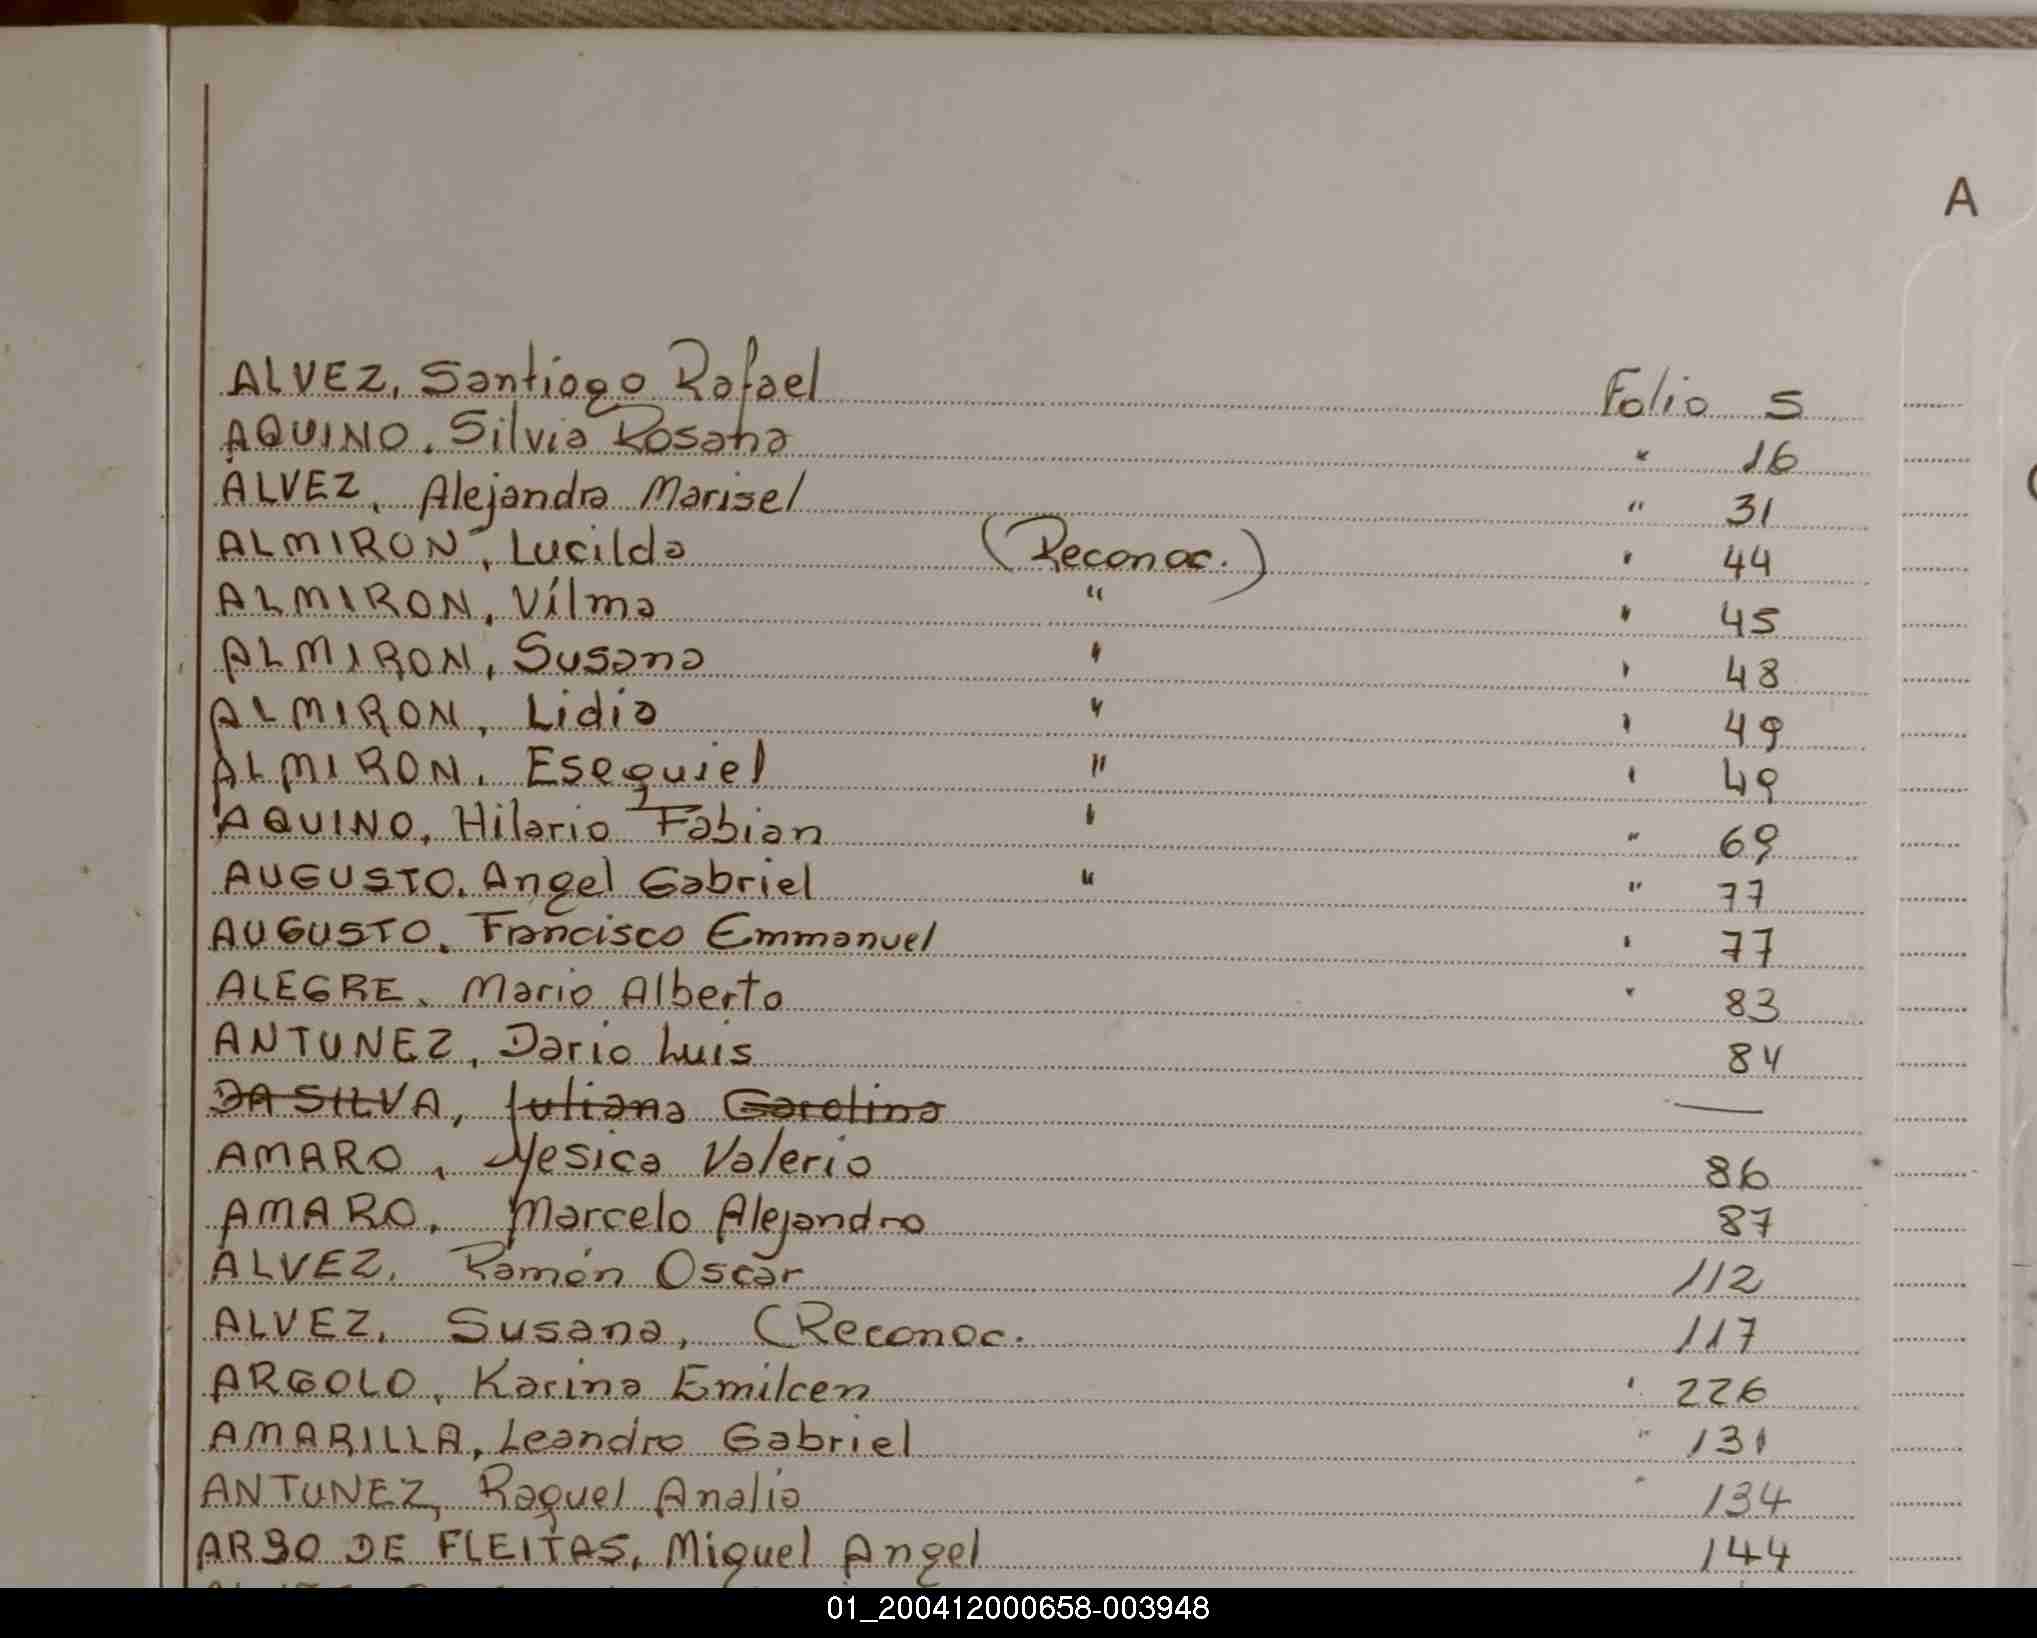 A
ALVEZ, Santiago Rafael Folio 5
AQUINO, Silvia Rosana " 16
ALVEZ, Alejandra Marisel " 31
ALMIRON, Lucilda (Reconoc.) " 44
ALMIRON, Vilma " " 45
ALMIRON, Susana " " 48
ALMIRON, Lidia " " 49
ALMIRON, Esequiel " " 49
AQUINO, Hilario Fabian " " 69
AUGUSTO, Angel Gabriel " " 77
AUGUSTO, Francisco Emmanuel " 77
ALEGRE, Mario Alberto " 83
ANTUNEZ, Dario Luis 84
DA SILVA, Juliana Carolina —
AMARO, Yesica Valeria 86
AMARO, Marcelo Alejandro 87
ALVEZ, Ramón Oscar 112
ALVEZ, Susana, (Reconoc. 117
ARGOLO, Karina Emilcen " 226
AMARILLA, Leandro Gabriel " 131
ANTUNEZ, Raquel Analia " 134
ARBO DE FLEITAS, Miguel Angel 144
01_200412000658-003948